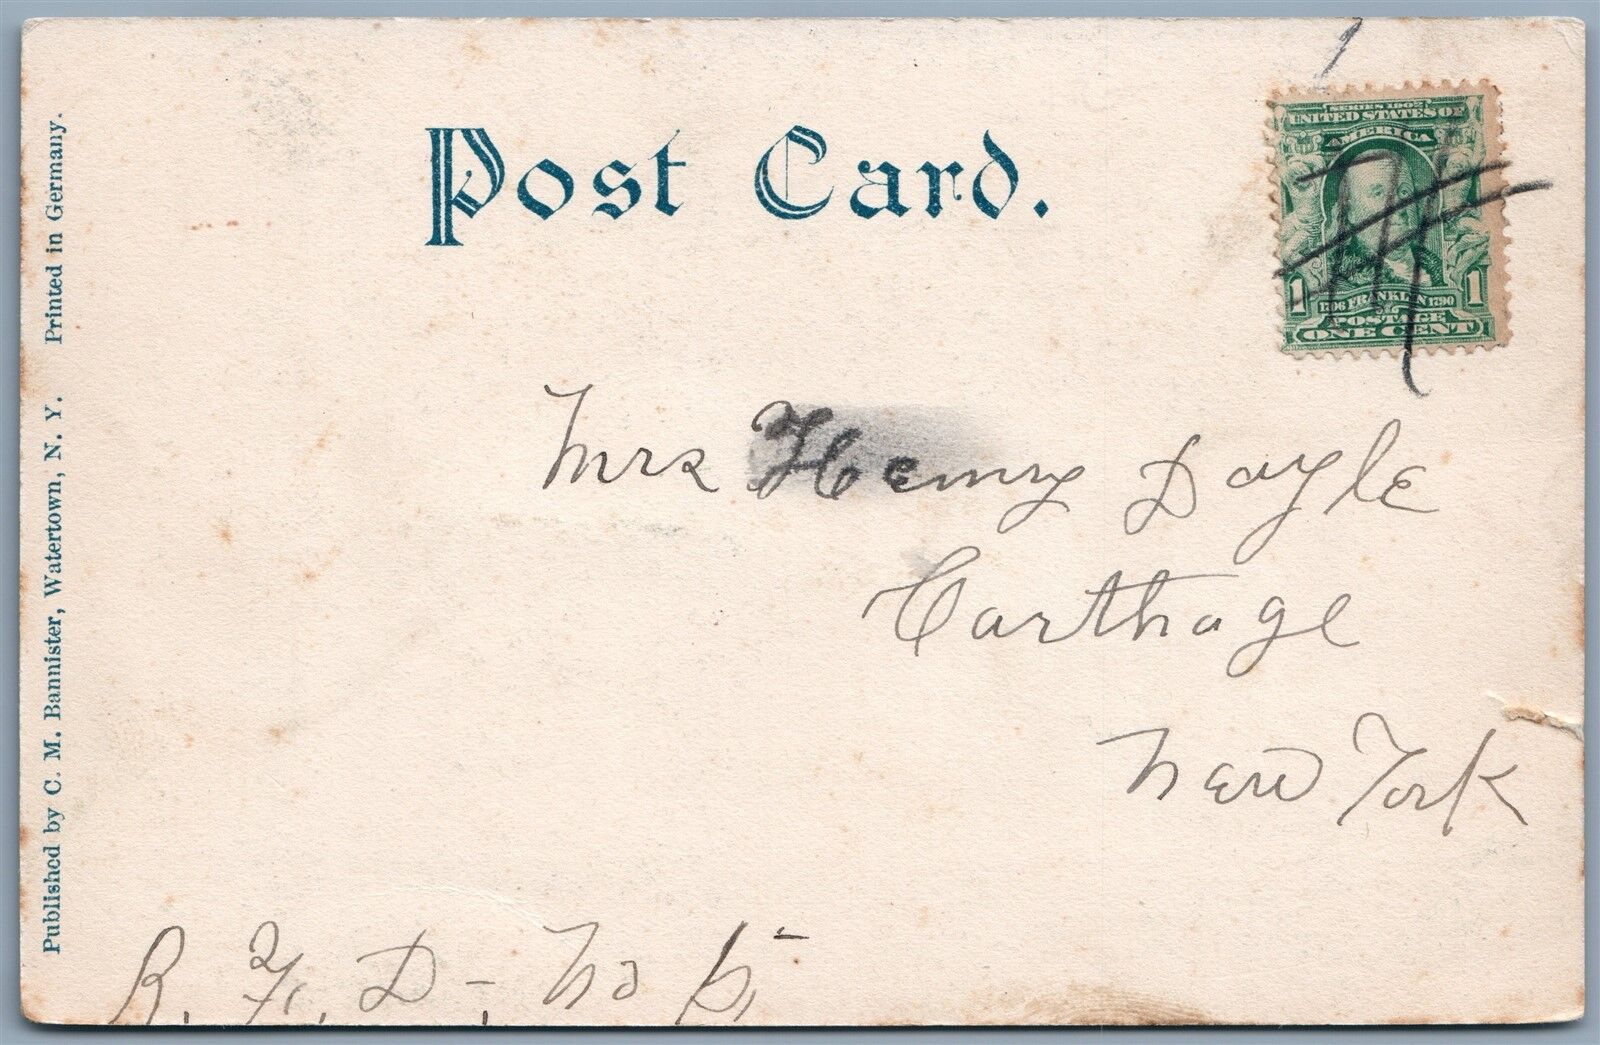 Post Card.
SERIES 1902
UNITED STATES OF
AMERICA
1 1706 FRANKLIN 1790 1
POSTAGE
ONE CENT
Mrs Henry Doyle
Carthage
New York
R. F. D - No 5
Published by C. M. Bannister, Watertown, N. Y. Printed in Germany.